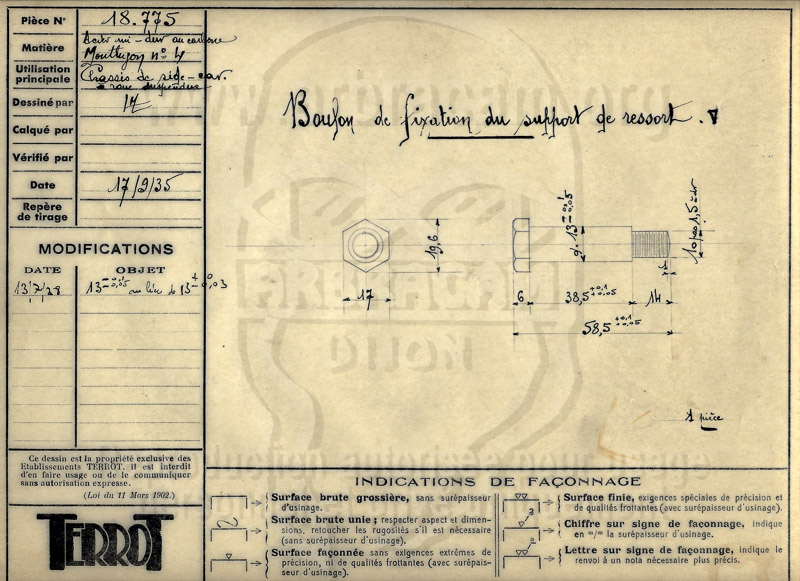 Pièce N° 18.775
Matière Acier mi-dur au carbone
Montluçon n° 4
Utilisation principale Chassis de side-car.
à roue suspendue
Dessiné par
Calqué par
Vérifié par
Date 17/9/35
Repère de tirage
MODIFICATIONS
DATE OBJET
au lieu de
Boulon de fixation du support de ressort.
19,6
17
6
38,5 +0,1 +0,05
14
58,5 +0,1 +0,05
1 pièce
Ce dessin est la propriété exclusive des
Etablissements TERROT, il est interdit
d'en faire usage ou de le communiquer
sans autorisation expresse.
(Loi du 11 Mars 1902.)
TERROT
INDICATIONS DE FAÇONNAGE
Surface brute grossière, sans surépaisseur
d'usinage.
Surface brute unie ; respecter aspect et dimen-
sions, retoucher les rugosités s'il est nécessaire
(sans surépaisseur d'usinage).
Surface façonnée sans exigences extrêmes de
précision, ni de qualités frottantes (avec surépais-
seur d'usinage).
Surface finie, exigences spéciales de précision et
de qualités frottantes (avec surépaisseur d'usinage).
Chiffre sur signe de façonnage, indique
en m/m la surépaisseur d'usinage.
Lettre sur signe de façonnage, indique le
renvoi à un nota nécessaire plus précis.